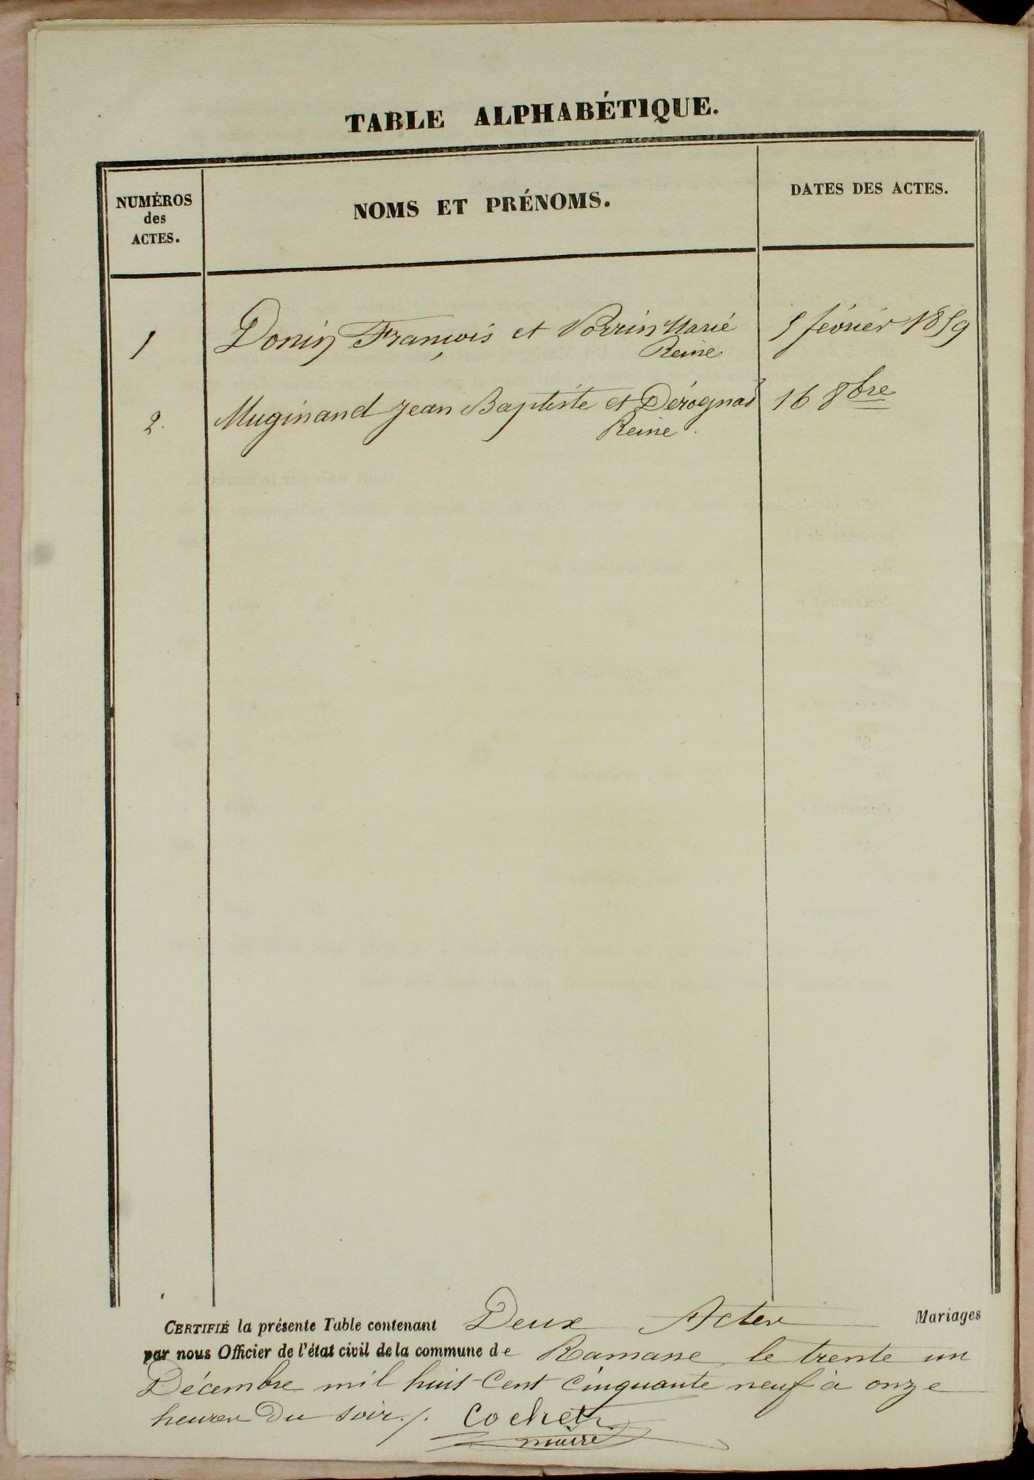 TABLE ALPHABÉTIQUE.
NUMÉROS
des
ACTES.
NOMS ET PRÉNOMS.
DATES DES ACTES.
1 Donin François et Perrin Marie 5 février 1859
Reine
2. Muginand Jean Baptiste et Dérognat 16 8bre
Reine.
CERTIFIÉ la présente Table contenant Deux Actes Mariages
par nous Officier de l'état civil de la commune de Ramasse, le trente un
Décembre mil huit cent cinquante neuf à onze
heures du soir./. Cochet
maire